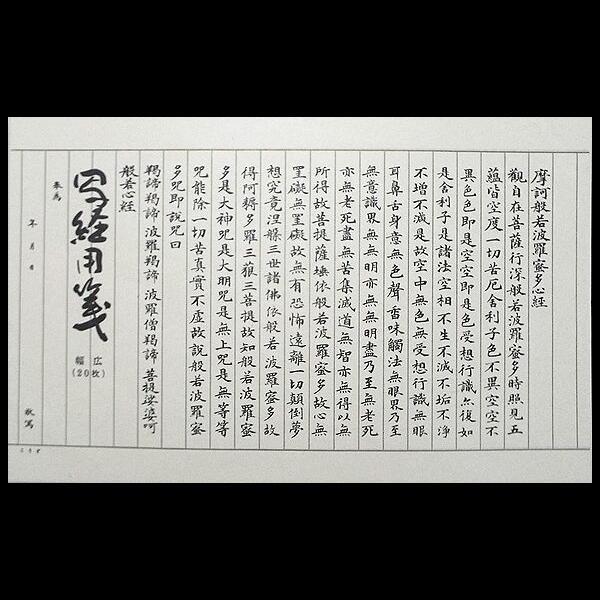 摩訶般若波羅蜜多心經
觀自在菩薩行深般若波羅蜜多時照見五
蘊皆空度一切苦厄舍利子色不異空空不
異色色即是空空即是色受想行識亦復如
是舍利子是諸法空相不生不滅不垢不淨
不增不減是故空中無色無受想行識無眼
耳鼻舌身意無色聲香味觸法無眼界乃至
無意識界無無明亦無無明盡乃至無老死
亦無老死盡無苦集滅道無智亦無得以無
所得故菩提薩埵依般若波羅蜜多故心無
罣礙無罣礙故無有恐怖遠離一切顛倒夢
想究竟涅槃三世諸佛依般若波羅蜜多故
得阿耨多羅三藐三菩提故知般若波羅蜜
多是大神咒是大明咒是無上咒是無等等
咒能除一切苦真實不虛故說般若波羅蜜
多咒即說咒曰
羯諦羯諦 波羅羯諦 波羅僧羯諦 菩提娑婆呵
般若心經
写経用箋
幅 広
(20枚)
奉為
年 月 日
敬写